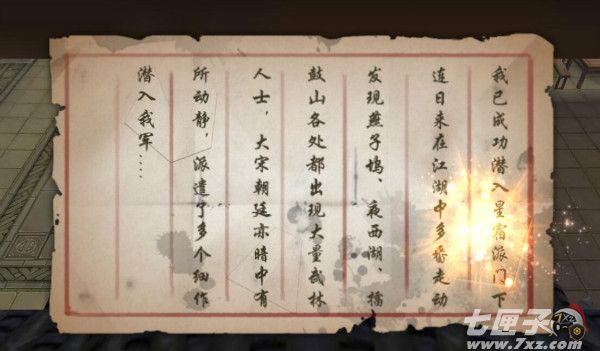 我已成功潜入星宿派门下
连日来在江湖中多番走动
发现燕子坞、夜西湖、擂
鼓山各处都出现大量武林
人士，大宋朝廷亦暗中有
所动静，派遣了多个细作
潜入我军....
七匣子
www.7xz.com